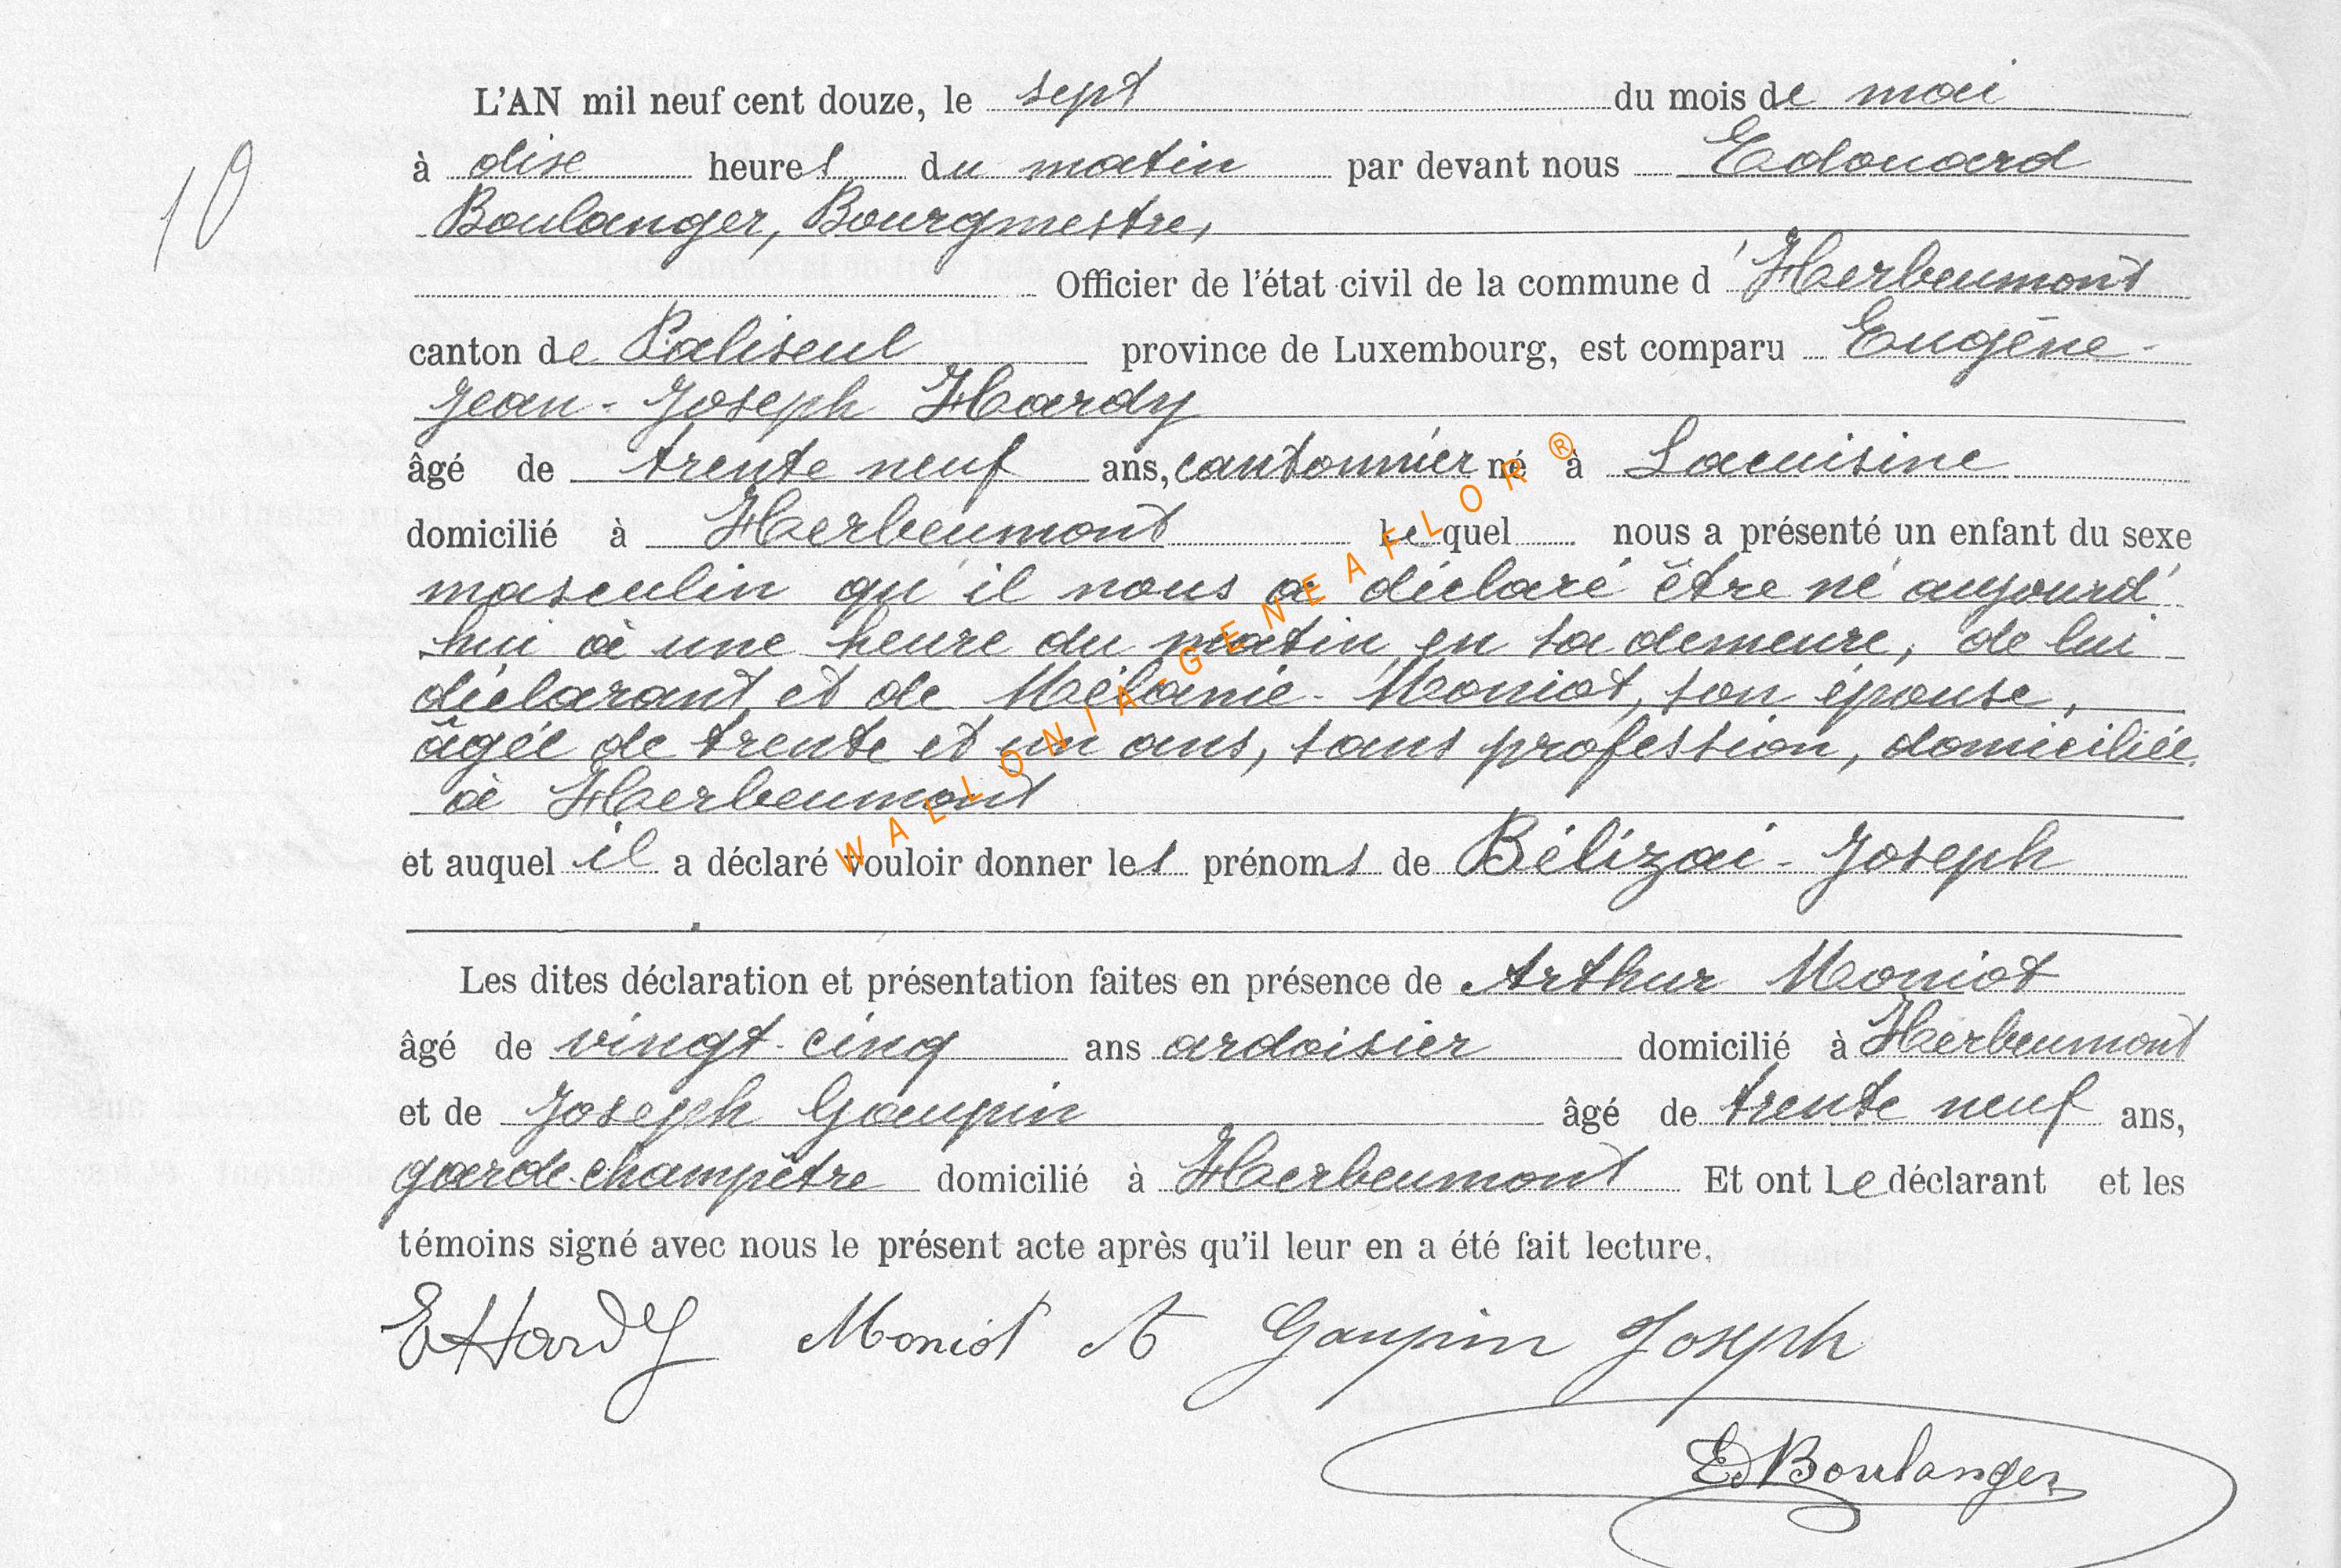 L'AN mil neuf cent douze, le sept du mois de mai
10
à dise heures du matin par devant nous Edouard
Boulanger, Bourgmestre,
Officier de l'état civil de la commune d'Herbeumont
canton de Paliseul province de Luxembourg, est comparu Eugène-
Jean-Joseph Hardy
âgé de trente neuf ans, cantonnier né à Lacuisine
domicilié à Herbeumont lequel nous a présenté un enfant du sexe
masculin qu'il nous a déclaré être né aujourd'
hui à une heure du matin en sa demeure, de lui
déclarant et de Mélanie-Moniot, son épouse,
âgée de trente et un ans, sans profession, domiciliée
à Herbeumont
et auquel il a déclaré vouloir donner les prénoms de Bélizai-Joseph
Les dites déclaration et présentation faites en présence de Arthur Moniot
âgé de vingt-cinq ans ardoisier domicilié à Herbeumont
et de Joseph Gaupin âgé de trente neuf ans,
garde-champêtre domicilié à Herbeumont Et ont le déclarant et les
témoins signé avec nous le présent acte après qu'il leur en a été fait lecture.
E Hardy Moniot A Gaupin Joseph
Ed Boulanger
WALLONIA-GENEAFLOR ®